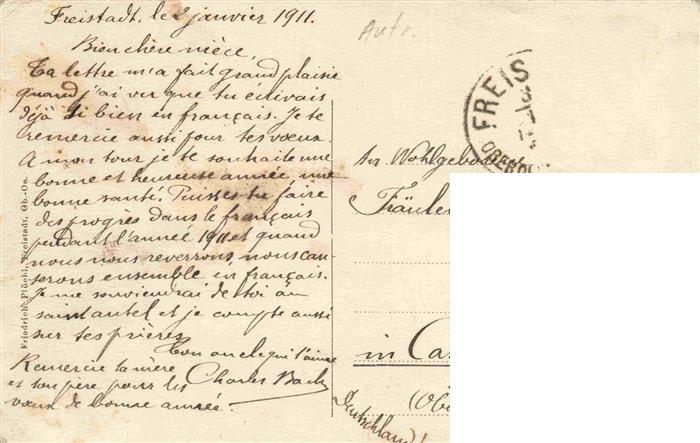 Freistadt, le 2 janvier 1911.
Autr.
Bien chère nièce,
Ta lettre m'a fait grand plaisir
quand j'ai vu que tu écrivais
déjà si bien en français. Je te
remercie aussi pour tes vœux.
A mon tour je te souhaite une
bonne et heureuse année une
bonne santé. Puisses-tu faire
des progrès dans le français
pendant l'année 1911 et quand
nous nous reverrons, nous cau-
serons ensemble en français.
Je me souviendrai de toi au
saint autel et je compte aussi
sur tes prières
Ton oncle qui t'aime
Charles Bach
Remercie ta mère
et ton père pour les
vœux de bonne année.
Friedrich Plöchl, Freistadt, Ob.-Oe.
FREIS
An Wohlgebo
Fräule
in Ca
(Ob
Deutschland)